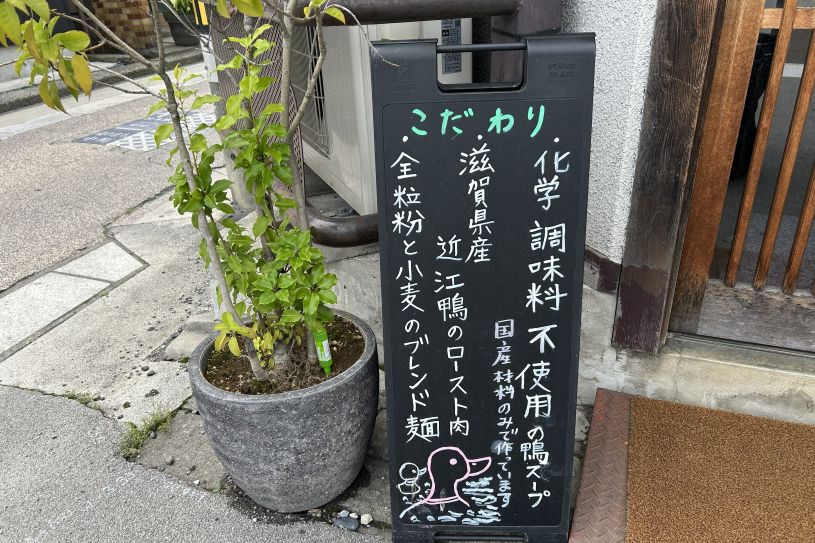 こだわり
・化学調味料不使用の鴨スープ
国産材料のみで作っています
・滋賀県産
近江鴨のロースト肉
・全粒粉と小麦のブレンド麺